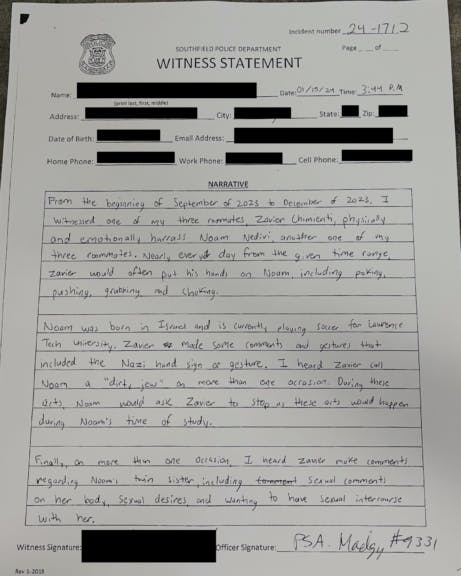 Incident number 24-1712
SOUTHFIELD POLICE DEPARTMENT
Page ___ of ___
WITNESS STATEMENT
Name: Date: 01/15/24 Time: 3:44 P.M
(print last, first, middle)
Address: City: State: Zip:
Date of Birth: Email Address:
Home Phone: Work Phone: Cell Phone:
NARRATIVE
From the beginning of September of 2023 to December of 2023, I
witnessed one of my three roommates, Zavier Chimienti, physically
and emotionally harrass Noam Nedivi, another one of my
three roommates. Nearly every day from the given time range,
Zavier would often put his hands on Noam, including poking,
pushing, grabbing and choking.
Noam was born in Israel and is currently playing soccer for Lawrence
Tech University. Zavier made some comments and gestures that
included the Nazi hand sign or gesture. I heard Zavier call
Noam a "dirty jew" on more than one occasion. During these
acts, Noam would ask Zavier to stop as these acts would happen
during Noam's time of study.
Finally, on more than one occasion, I heard Zavier make comments
regarding Noam's twin sister, including comment sexual comments
on her body, sexual desires, and wanting to have sexual intercourse
with her.
Witness Signature: Officer Signature: PSA. #9331
Rev 1-2018